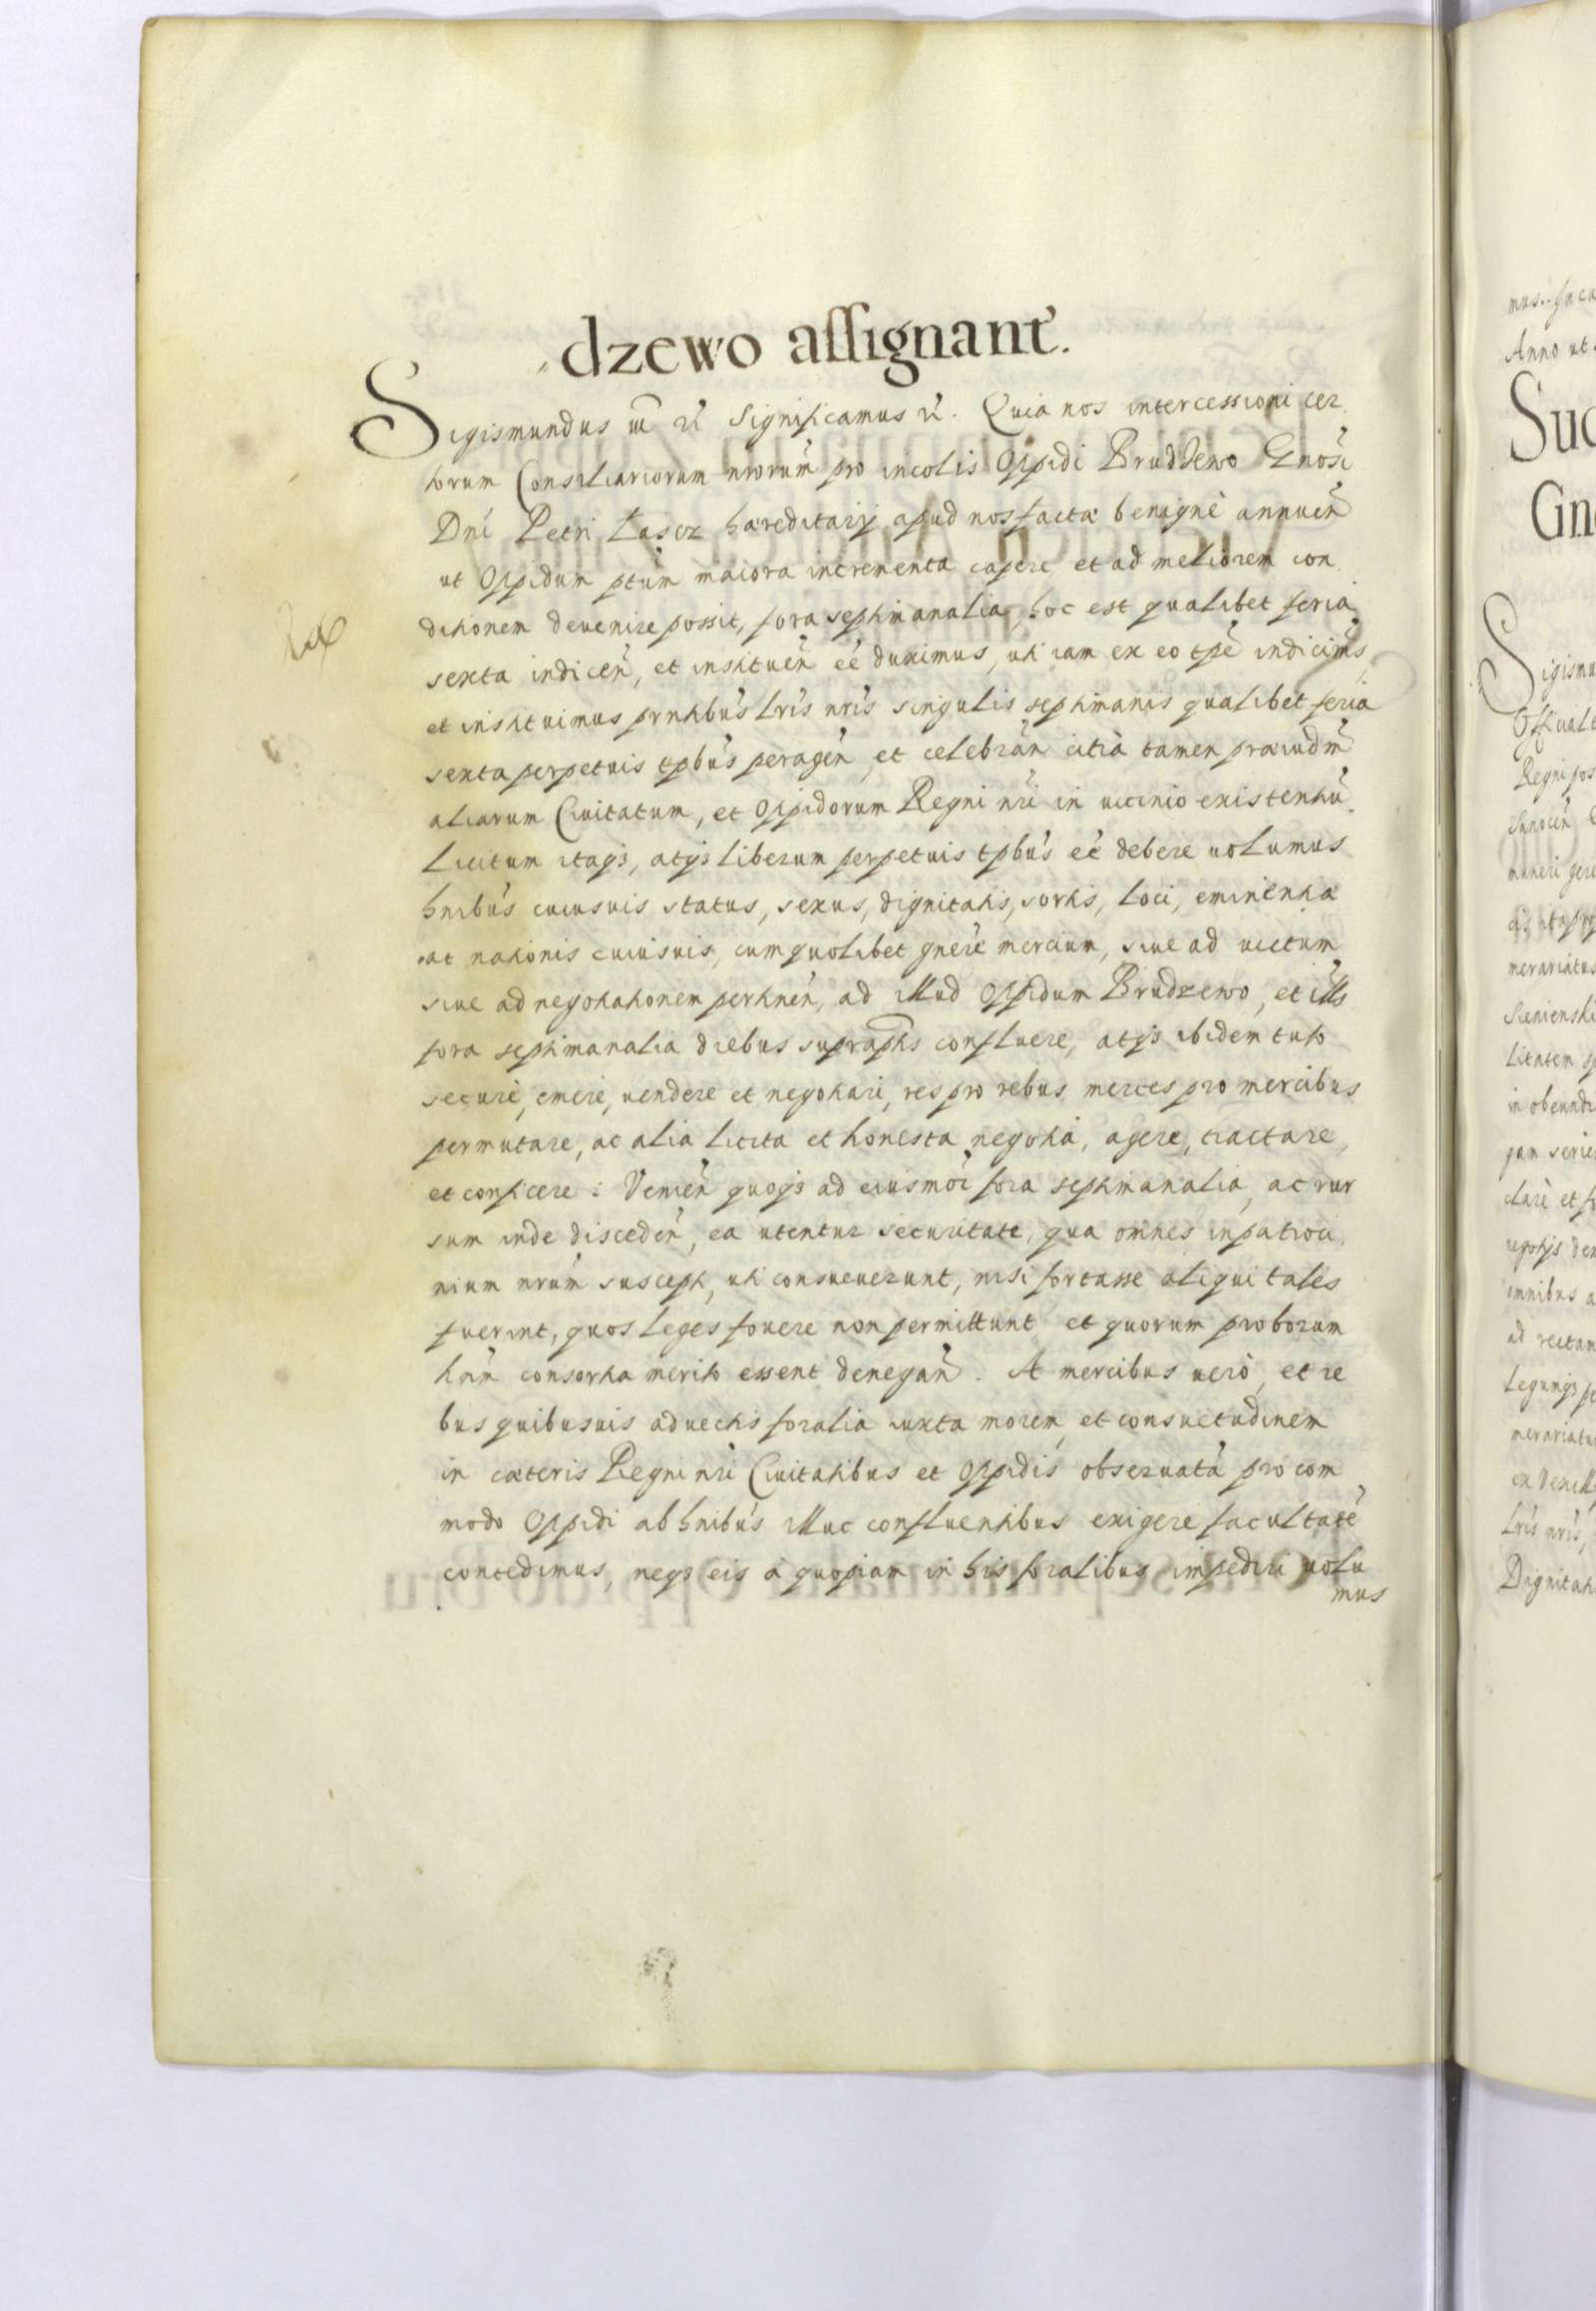 dzewo assignant̃.
Sigismundus III etc̃ Significamus etc̃. Quia nos intercessioni cer
torum Consiliariorum nrorum̃ pro incolis Oppidi Brudzewo Gnosi
Dni Petri Łascz hæreditarij apud nos facta benignè annuen̄
ut Oppidum ptum̃ maiora incrementa capere et ad meliorem con
ditionem devenire possit, fora septimanalia, hoc est qualibet feria
sexta indicen̄, et instituen̄ eẽ duximus, uti iam ex eo tpẽ indicim̃s
et instituimus pr̃ntibus Lris nris singulis septimanis qualibet feria
sexta perpetuis tpbus̃ peragen̄, et celebran̄ citrà tamen præiudm̃
aliarum Civitatum, et Oppidorum Regni nri in vicinio existentiũ.
Licitum itaqs, atqs liberum perpetuis tpbus̃ eẽ debere uolumus
hnibus̃ cuiusuis status, sexus, dignitatis, sortis, loci, eminentia
ac nationis cuiusuis, cum quolibet gnere mercium, siue ad uictum
siue ad negotiationem pertinen̄, ad illud Oppidum Brudzewo, et ills̃
fora septimanalia diebus supraptis confluere, atqs ibidem tuto
securè, emere, uendere et negotiari, res pro rebus merces pro mercibus
permutare, ac alia licita et honesta negotia, agere, tractare,
et conficere: Venien̄ quoqs ad eiusmoi fora septimanalia, ac rur
sum inde disceden̄, ea utentur securitate, qua omnes in patroci
nium nrum̃ suscepti, uti consueuerunt, nisi fortasse aliqui tales
fuerint, quos leges fouere non permittunt et quorum proborum
hnm̃ consortia merito essent denegan̄. A mercibus uerò, et re
bus quibusuis aduectis foralia iuxta morem, et consuetudinem
in cæteris Regni nri Civitatibus et Oppidis obseruatã pro com
modo Oppidi ab hnibus̃ illuc confluentibus exigere facultatẽ
concedimus, neqs eis à quopiam in his foralibus impediri uolu
mus